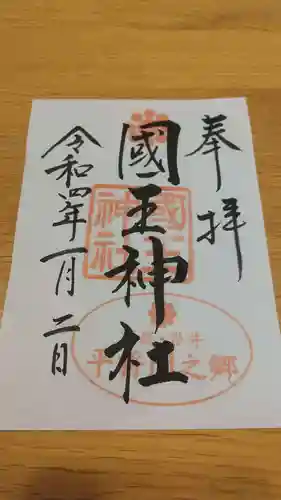 奉拝
國王神社
令和四年一月二日
國王神社
之郷